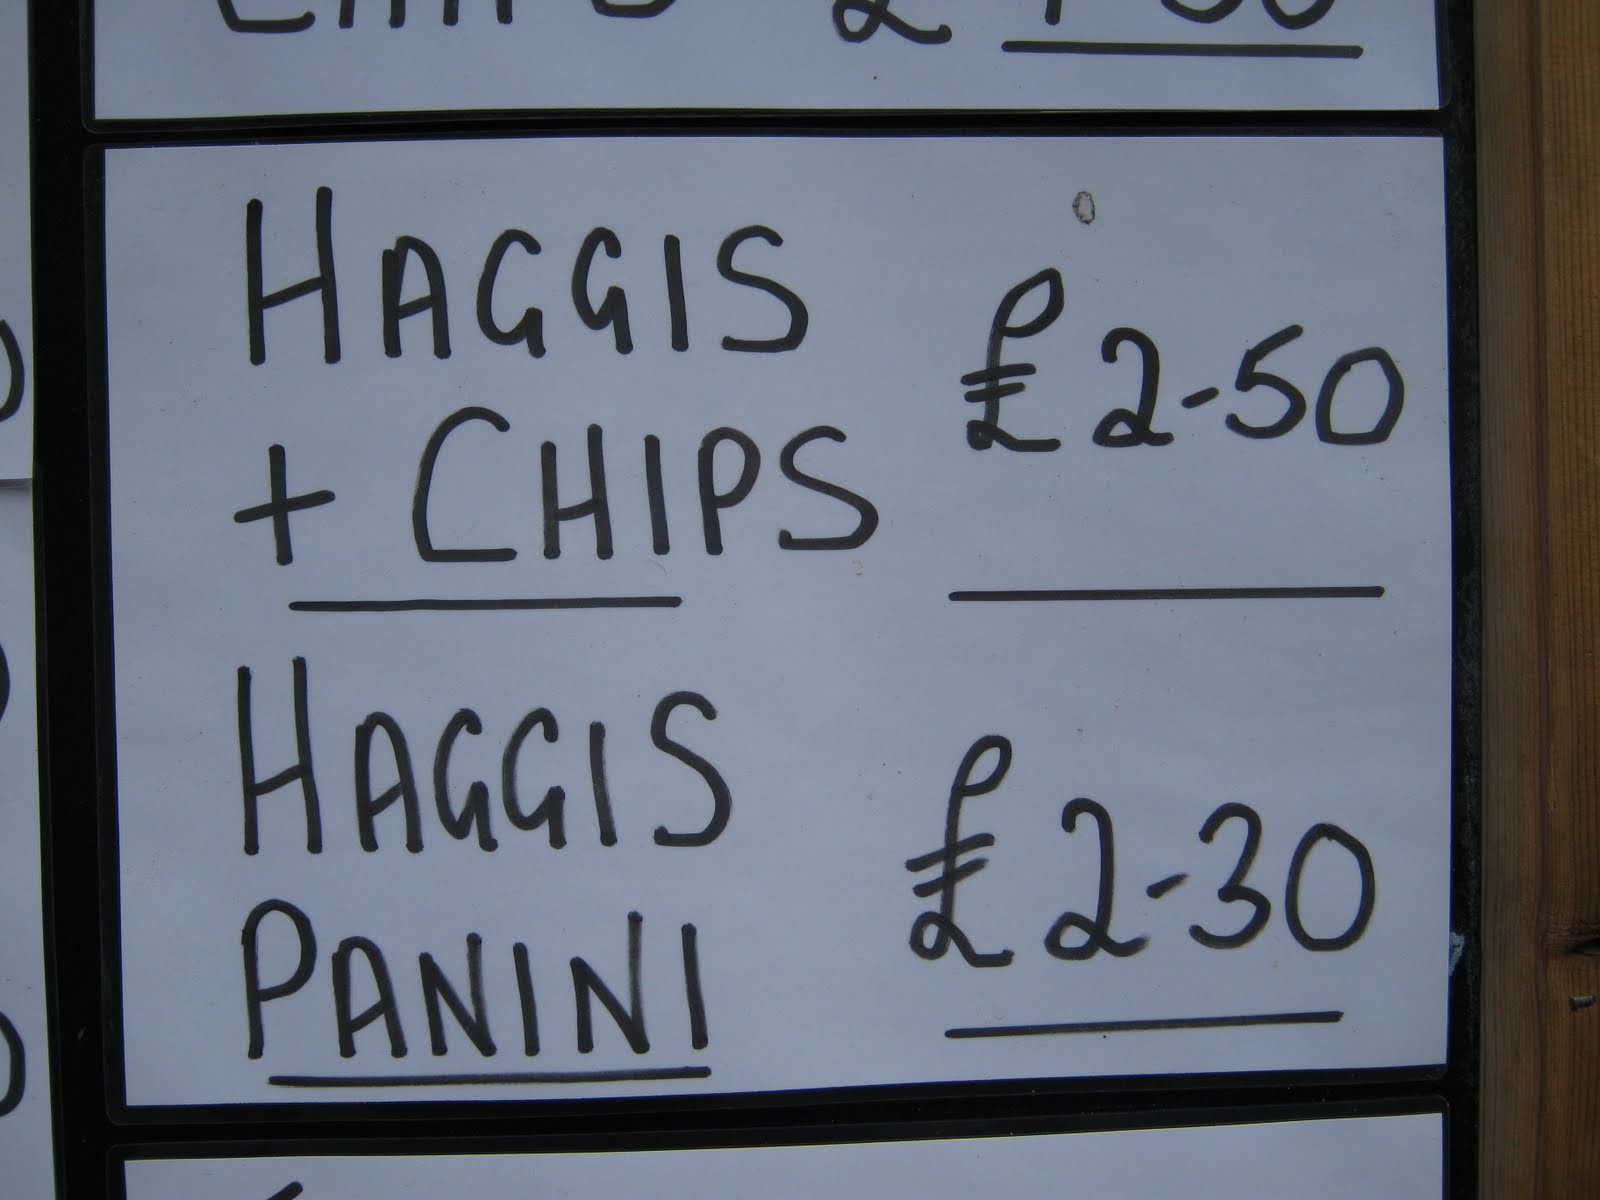 HAGGIS
+ CHIPS £2-50
HAGGIS
PANINI £2-30